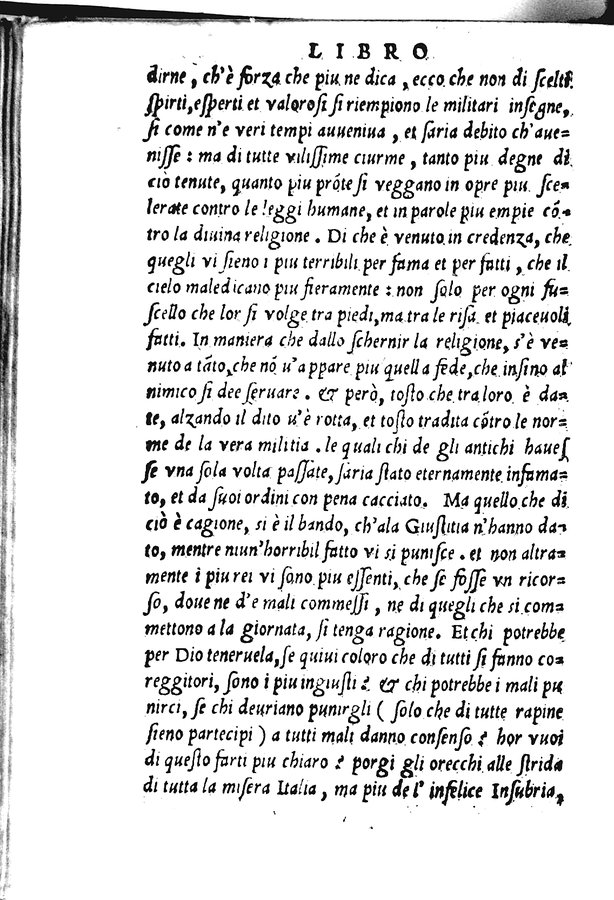 LIBRO
dirne, ch'è forza che piu ne dica, ecco che non di ſcelti
ſpirti, eſperti et valoroſi ſi riempiono le militari inſegne,
ſi come n'e veri tempi auueniua, et ſaria debito ch'aue=
niſſe: ma di tutte viliſſime ciurme, tanto piu degne di
ciò tenute, quanto piu prõte ſi veggano in opre piu ſce=
lerate contro le leggi humane, et in parole piu empie cõ=
tro la diuina religione. Di che è venuto in credenza, che
quegli vi ſieno i piu terribili per fama et per fatti, che il
cielo maledicano piu fieramente: non ſolo per ogni fu=
ſcello che lor ſi volge tra piedi, ma tra le riſa et piaceuoli
fatti. In maniera che dallo ſchernir la religione, s'è ve=
nuto a tãto, che nõ v'appare piu quella fede, che inſino al
nimico ſi dee ſeruare. & però, toſto che tra loro è da=
te, alzando il dito v'è rotta, et toſto tradita cõtro le nor=
me de la vera militia. le quali chi de gli antichi haueſ
ſe vna ſola volta paſſate, ſaria ſtato eternamente infama=
to, et da ſuoi ordini con pena cacciato. Ma quello che di
ciò è cagione, si è il bando, ch'ala Giuſtitia n'hanno da=
to, mentre niun'horribil fatto vi si puniſce. et non altra=
mente i piu rei vi ſono piu eſſenti, che ſe foſſe vn ricor=
ſo, doue ne d'e mali commeſſi, ne di quegli che si com=
mettono a la giornata, ſi tenga ragione. Et chi potrebbe
per Dio teneruela, ſe quiui coloro che di tutti ſi fanno co=
reggitori, ſono i piu ingiuſti? & chi potrebbe i mali pu
nirci, ſe chi deuriano punirgli (ſolo che di tutte rapine
ſieno partecipi) a tutti mali danno conſenſo? hor vuoi
di queſto farti piu chiaro? porgi gli orecchi alle ſtrida
di tutta la miſera Italia, ma piu de l'infelice Inſubria,